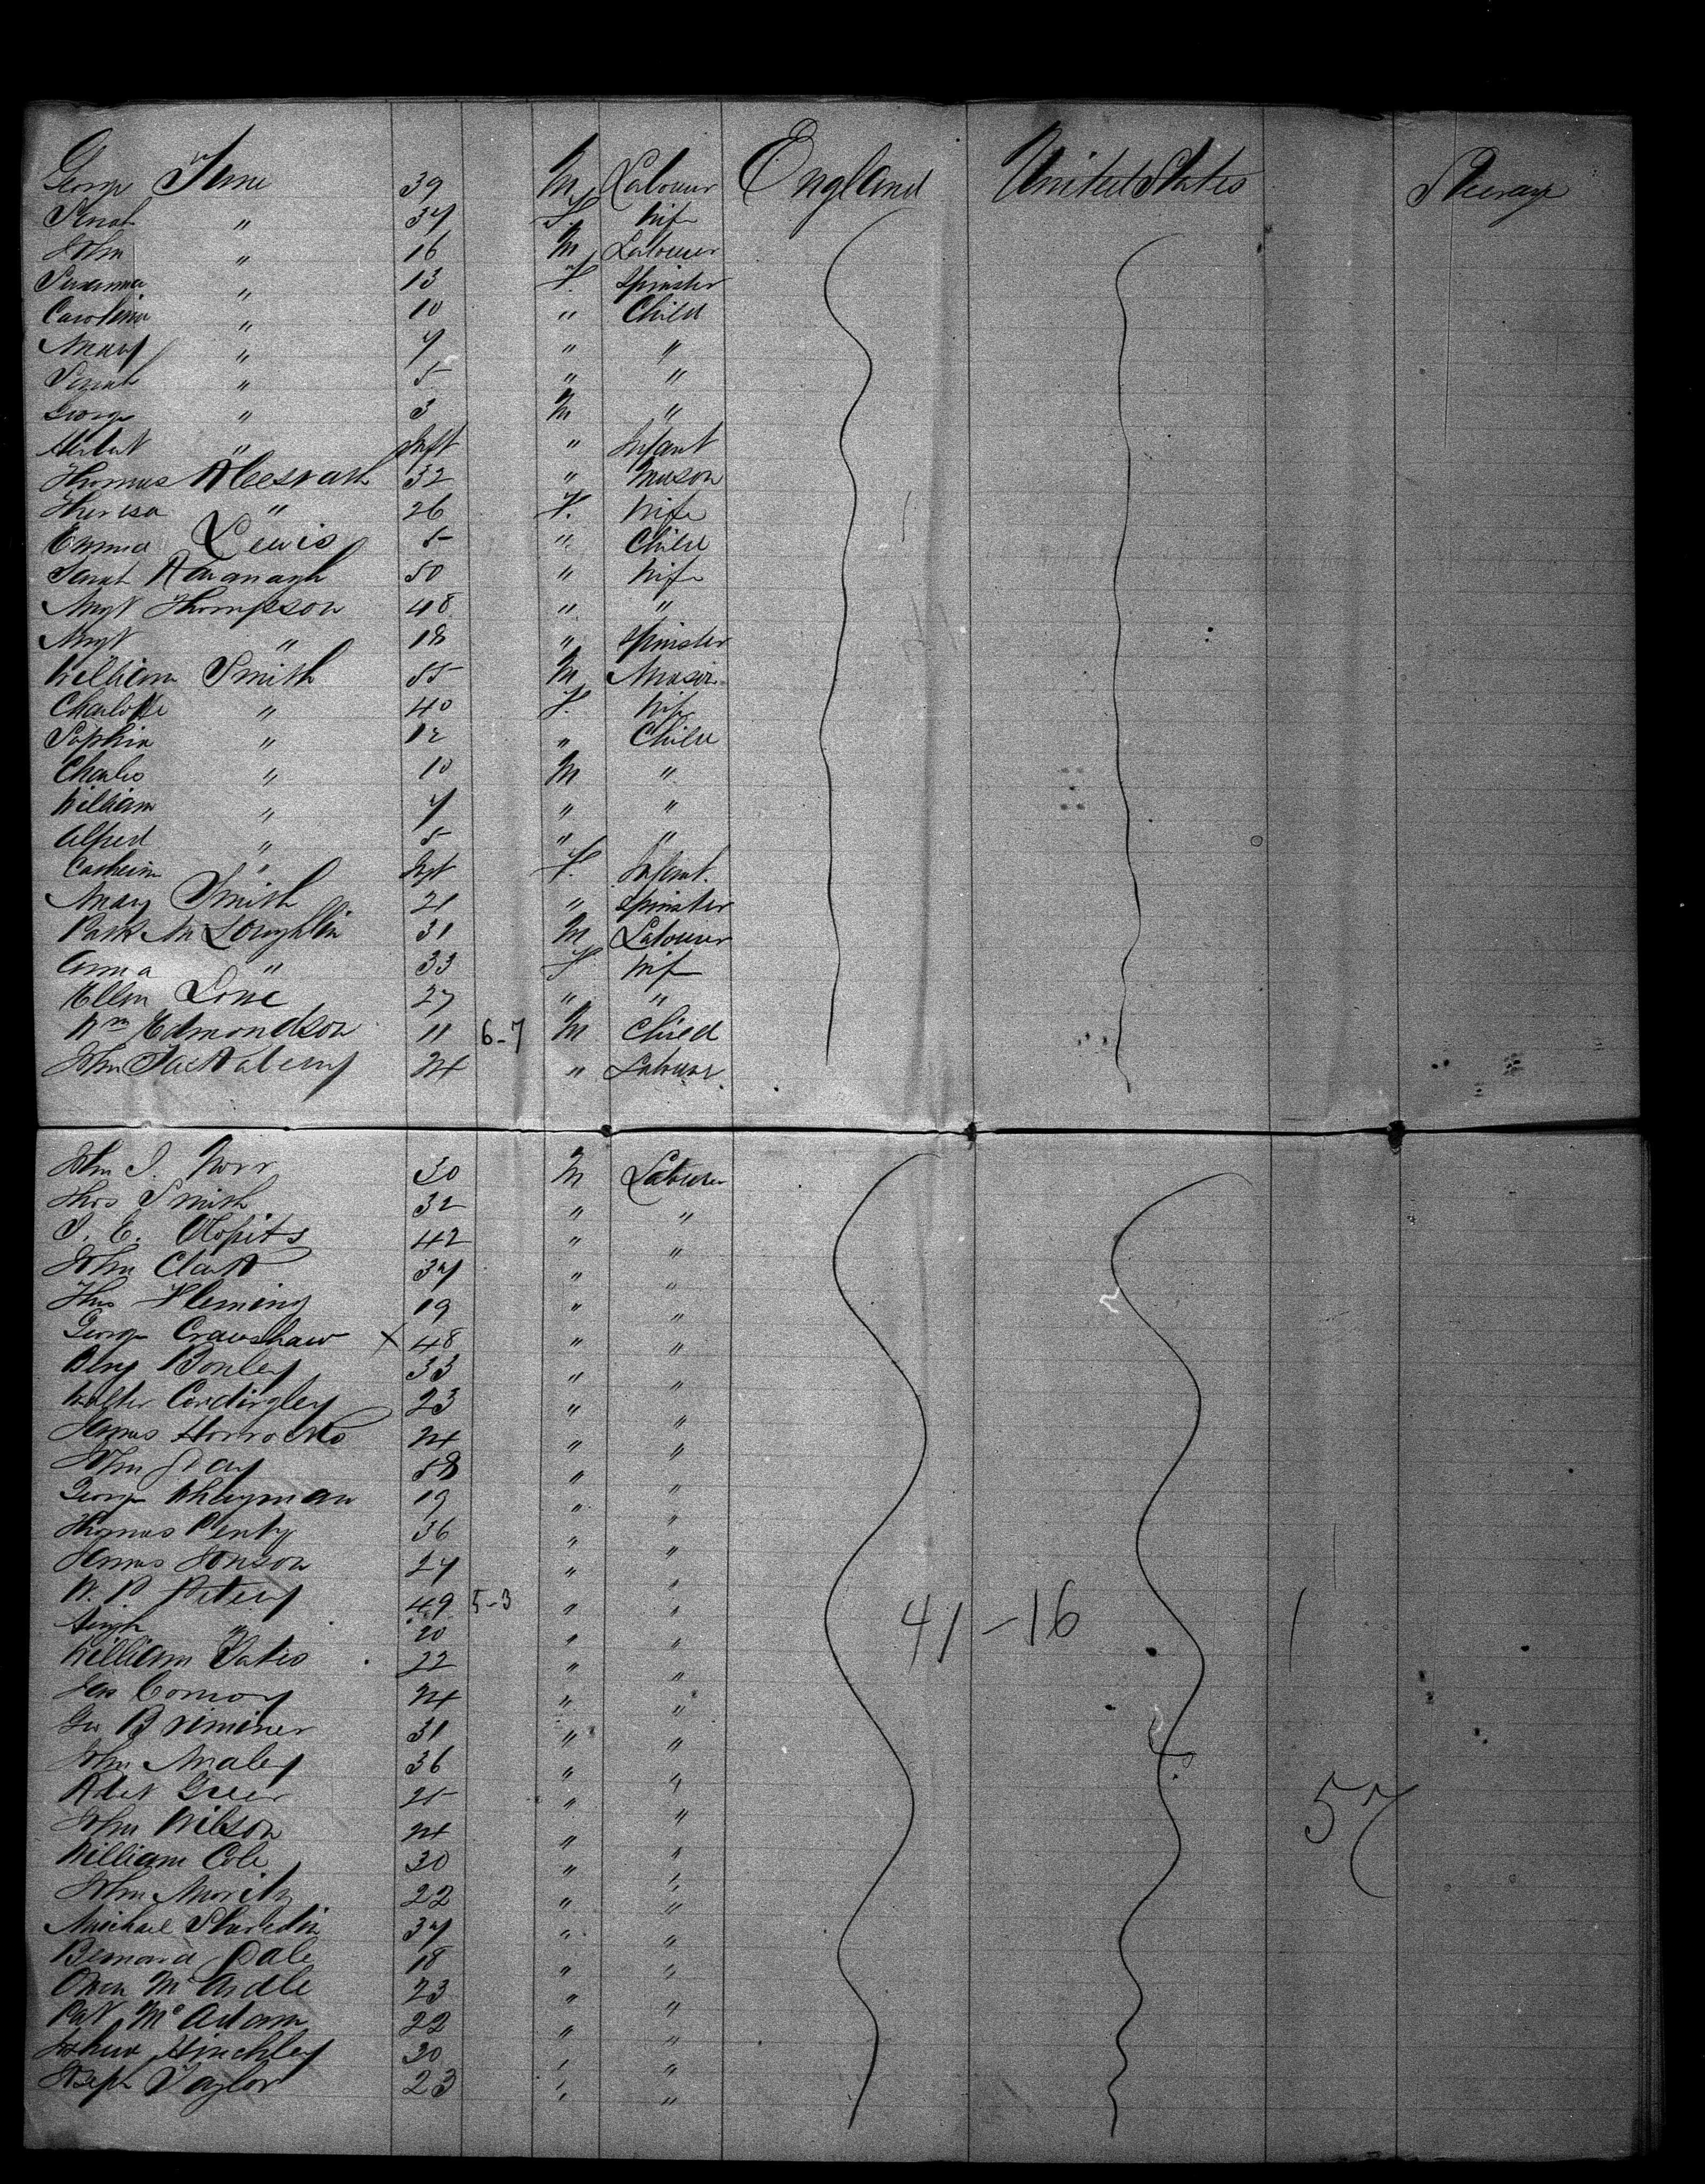 George 39 M Labourer England United States Steerage
Sarah " 37 F. Wife
John " 16 M Labourer
Susanna " 13 F. Spinster
Caroline " 10 " Child
Mary " 7 " "
Sarah " 5 " "
George " 3 M "
Herbert " Inft " Infant
Thomas 32 " Mason
Theresa " 26 F. Wife
Emma Lewis 5 " Child
Sarah Kavanagh 50 " Wife
Mgt Thompson 48 " "
Mgt " 18 " Spinster
William Smith 55 M Mason
Charlotte " 40 F. Wife
Sophia " 12 " Child
Charles " 10 M "
William " 7 " "
Alfred " 5 " "
Catherine " Inft F. Infant.
Mary Smith 21 " Spinster
Patk McLoughlin 31 M Labourer
Anna " 33 F Wife
Ellen 27 " "
Wm Edmondson 11 6-7 M Child
John 24 " Labourer
John 30 M Labourer
Thos Smith 32 " "
42 " "
John Clark 37 " "
Thos Fleming 19 " "
George Crawshaw X 48 " "
Benj 33 " "
Walter Cordingley 23 " "
James Horrocks 24 " "
John Day 58 " "
George Whayman 19 " "
Thomas 36 " "
James 27 " "
W. P. 49 5-3 " "
Hugh " 20 " " 41-16
William Yates 22 " "
Jas Conroy 24 " "
Geo Brimmer 31 " "
John Maley 36 " "
Robt Greer 25 " " 57
John Wilson 24 " "
William Cole 30 " "
John 22 " "
Michael 37 " "
Bernard Dale 18 " "
Owen McArdle 23 " "
Pat McAdam 22 " "
Joshua Hinchley 30 " "
Joseph Taylor 23 " "